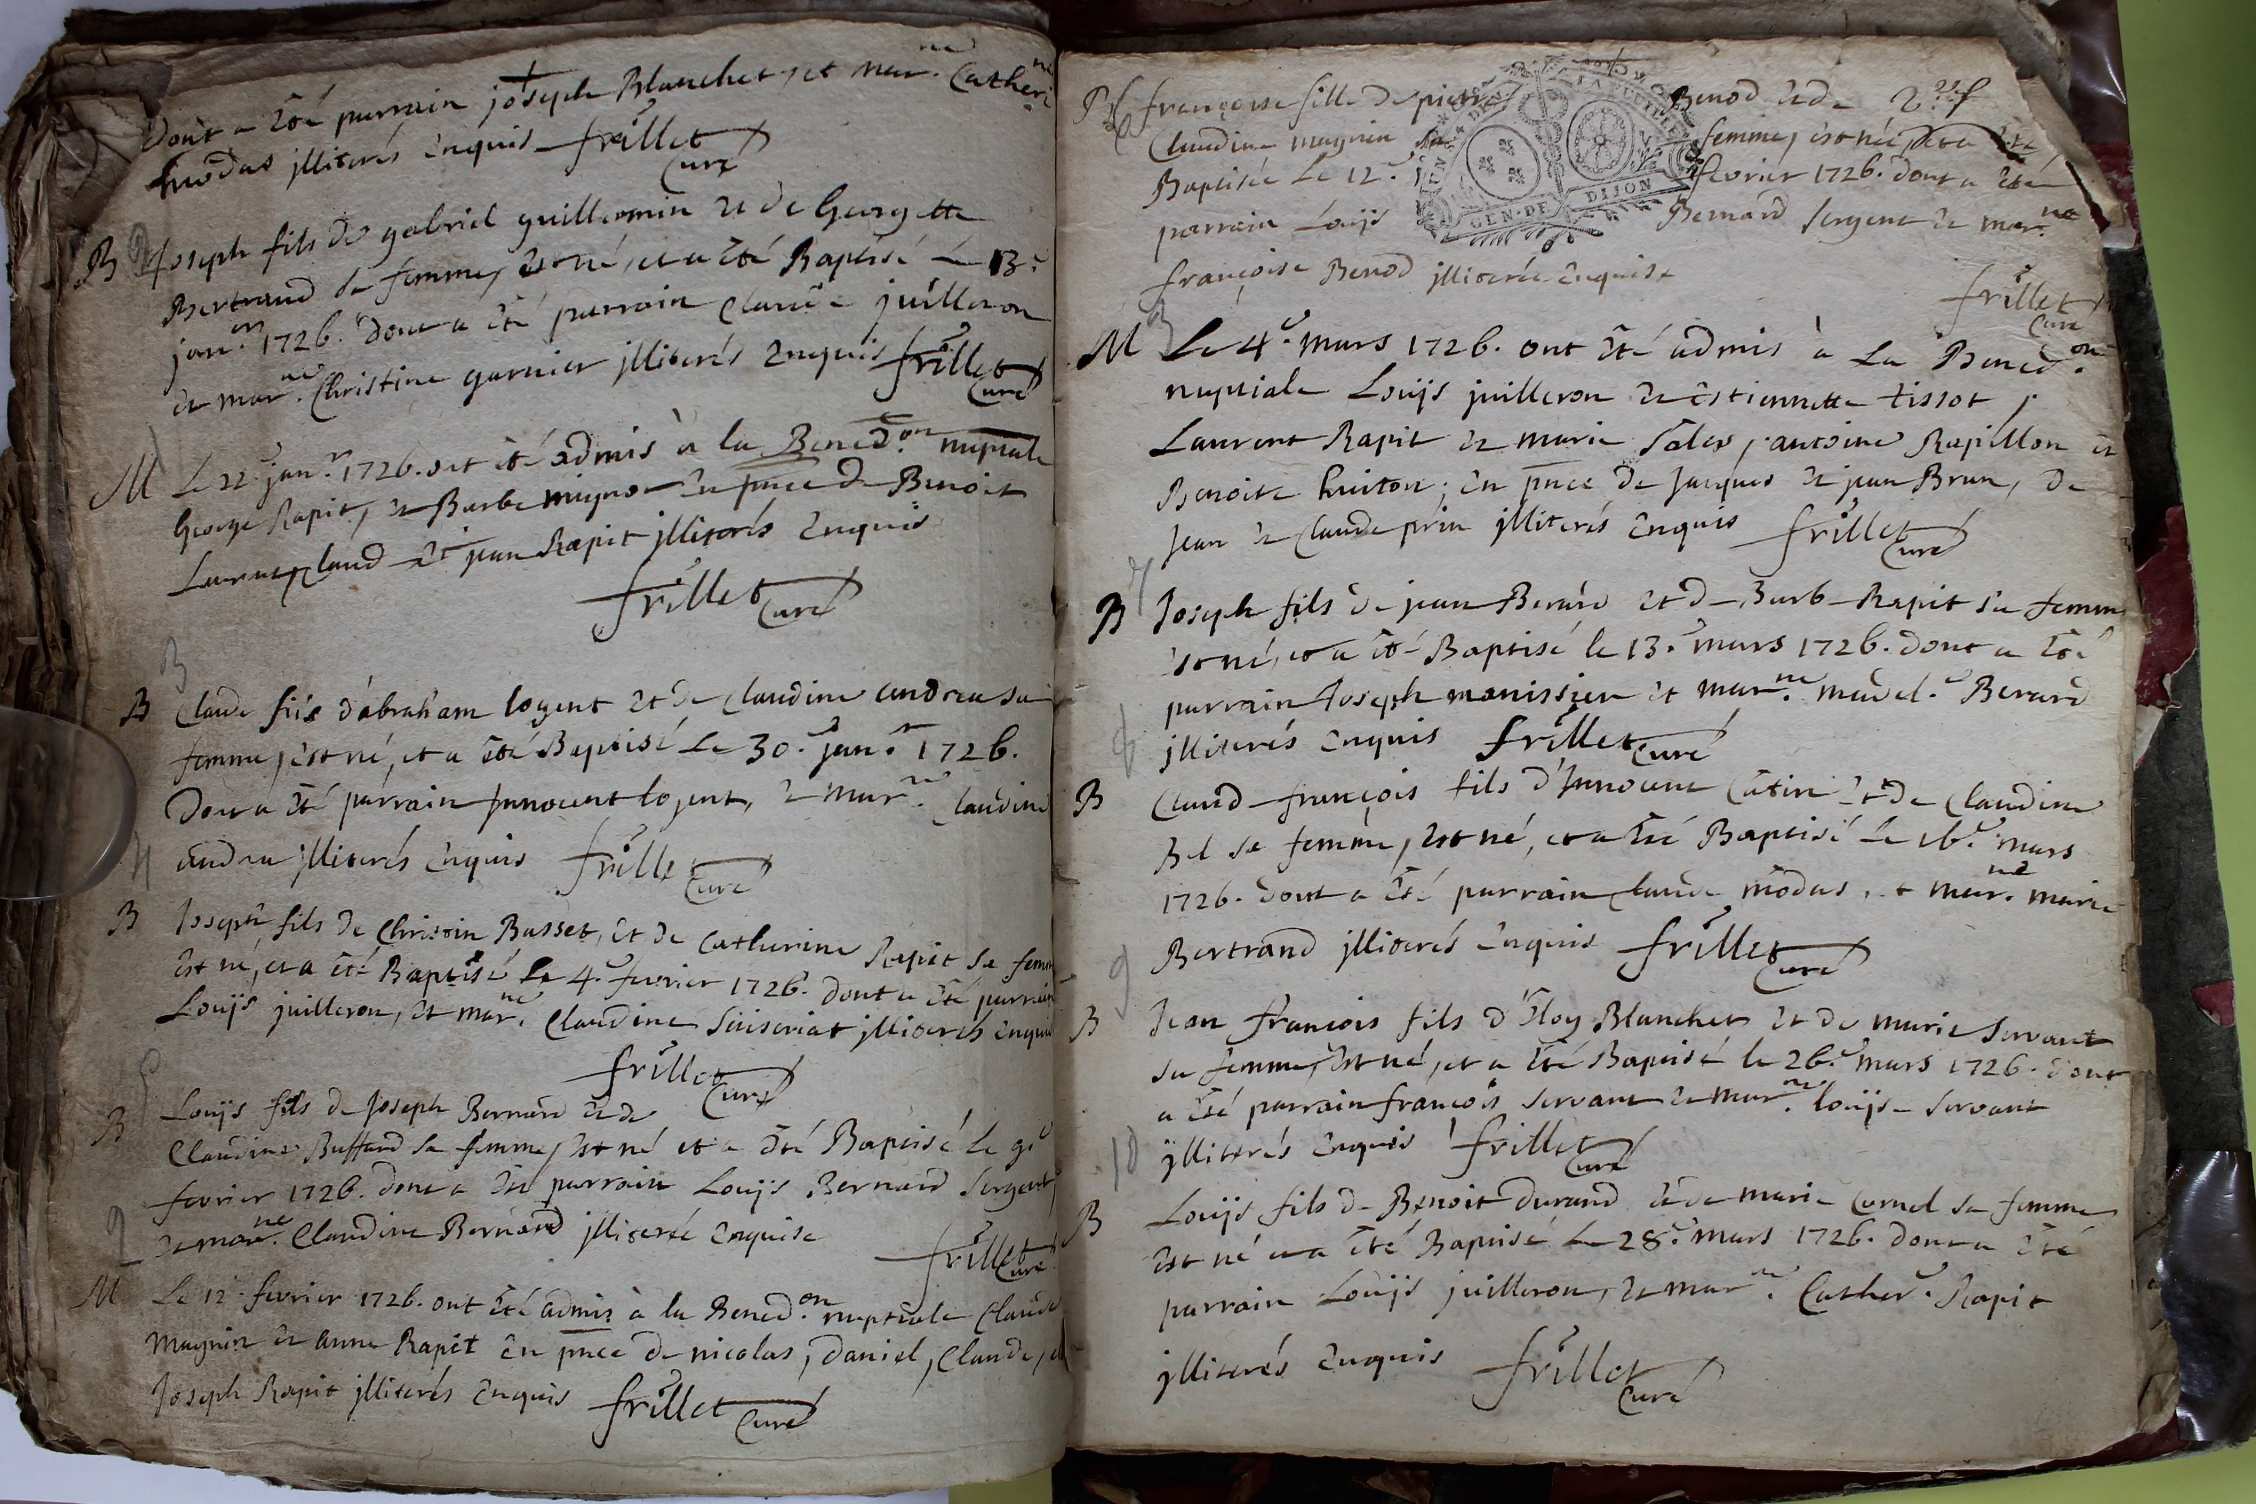 Dont a êté parrain joseph Blanchet, et mar.ne Catheri.ne
modas jlliterés Enquis frillet
Curé
B Joseph fils de gabriel guillermin et de Georgette
Bertrand sa femme, est né, et a êté Baptisé le 13.e
jan.er 1726. Dont a êté parrain Claude juilleron
et mar.ne Christine garnier jlliterés Enquis frillet
Curé
M Le 22.e jan.r 1726. ont êté admis à la Bened.on nuptiale
George Rapit, et Barbe mignot En pnce de Benoit
Laurent, Claud et jean Rapit jlliterés Enquis
frillet
Curé
3
B Claude fils d'abraham logent et de Claudine andrea sa
femme, est né, et a êté Baptisé Le 30.e jan.r 1726.
Dont a êté parrain jnnocent logent, et mar.ne Claudine
4 andrea jlliterés Enquis frillet
Curé
B Joseph fils de Christin Basset, et de Catherine Rapit sa femme
est né, et a êté Baptisé le 4.e fevrier 1726. Dont a êté parrain
Louijs juilleron, et mar.ne Claudine suiseriat jlliterés Enquis
frillet
Curé
5
B Louijs fils de Joseph Bernard et de
Claudine Buffard sa femme, est né et a êté Baptisé le 9.e
fevrier 1726. dont a êté parrain Louijs Bernard sergent,
et mar.ne Claudine Bernard jlliterée Enquise
frillet
Curé
2
M Le 12.e fevrier 1726. ont êté admis à la Bened.on nuptiale Claude
magnin et anne Rapit En pnce de nicolas, Daniel, Claude, et
Joseph Rapit jlliterés Enquis frillet
Curé
françoise fille de pierre Benod et de
Claudine magnin sa femme, est née, et a êté
Baptisée Le 12.e fevrier 1726. dont a êté
parrain Louijs Bernard sergent et mar.ne
françoise Benod jlliterée Enquise
frillet
Curé
GEN. DE DIJON
3
M Le 4.e mars 1726. ont êté admis à La Bened.on
nuptiale Louijs juilleron et Estiennette tissot,
Laurent Rapit et marie sales, antoine Rapillon et
Benoite huiton; En pnce de Jacques et jean Brun, de
Jean et Claude prin jlliterés Enquis frillet
Curé
7
B Joseph fils de jean Berard et de Barbe Rapit sa femme
est né, et a êté Baptisé le 13.e mars 1726. Dont a êté
parrain Joseph monissier et mar.ne madel.e Berard
8 jlliterés Enquis frillet
Curé
B Claud françois fils d'Jnnocent Catin et de Claudine
Bel sa femme, est né, et a êté Baptisé Le 16.e mars
1726. dont a êté parrain Claude modas, et mar.ne marie
9 Bertrand jlliterés Enquis frillet
Curé
B Jean françois fils d'Eloy Blanchet et de marie servant
sa femme, est né, et a êté Baptisé le 26.e mars 1726. dont
a êté parrain françois servant et mar.ne louijse servant
10 jlliterés Enquis frillet
Curé
B Louijs fils de Benoit Durand et de marie Cornel sa femme
est né et a êté Baptisé Le 28.e mars 1726. dont a êté
parrain Louijs juilleron, et mar.ne Cather.e Rapit
jlliterés Enquis frillet
Curé